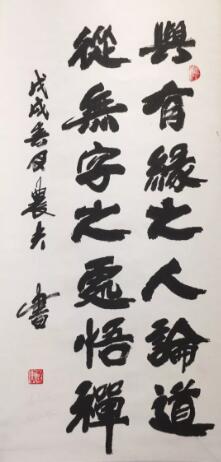 與有緣之人論道
從無字之處悟禪
戊戌年夏農夫
書